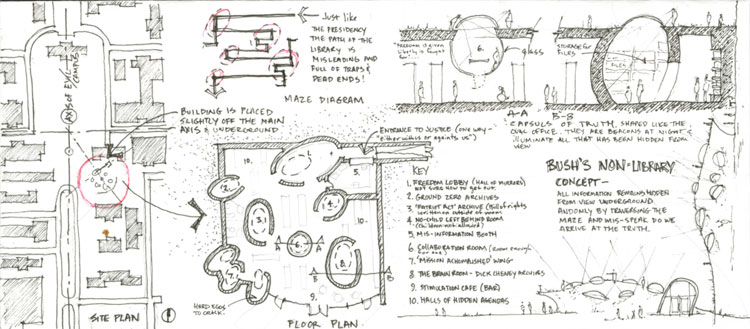 AXIS OF EVIL
CAMPUS
BUILDING IS PLACED
SLIGHTLY OFF THE MAIN
AXIS & UNDERGROUND
SITE PLAN
Just like
THE PRESIDENCY
THE PATH OF THE
LIBRARY IS
MISLEADING AND
FULL OF TRAPS &
DEAD ENDS!
MAZE DIAGRAM
ENTRANCE TO JUSTICE (one way -
"either with us or against us")
10.
5.
2.
4.
3.
10.
6.
8.
7.
B
B
9.
HARD EGGS
TO CRACK.
FLOOR PLAN
KEY
1. FREEDOM LOBBY (HALL OF MIRRORS)
NOT SURE HOW TO GET OUT
2. GROUND ZERO ARCHIVES
3. "PATRIOT ACT" ARCHIVE (Bill of rights
written on outside of room)
4. NO-CHILD LEFT BEHIND ROOM
(Children not allowed)
5. MIS-INFORMATION BOOTH
6. COLLABORATION ROOM (Room enough
for one)
7. "MISSION ACCOMPLISHED" WING
8. THE BRAIN ROOM - DICK CHENEY ARCHIVES
9. STIMULATION CAFE (BAR)
10. HALLS OF HIDDEN AGENDAS
6.
Glass
STORAGE for
FILES
A-A
B-B
CAPSULS OF TRUTH, SHAPED LIKE THE
OVAL OFFICE. THEY ARE BEACONS AT NIGHT &
ILLUMINATE ALL THAT HAS BEEN HIDDEN FROM
VIEW
BUSH'S NON-LIBRARY
CONCEPT-
ALL INFORMATION REMAINS HIDDEN
FROM VIEW UNDERGROUND
AND ONLY BY TRAVERSING THE
MAZE AND MIS-SPEAK DO WE
ARRIVE AT THE TRUTH.